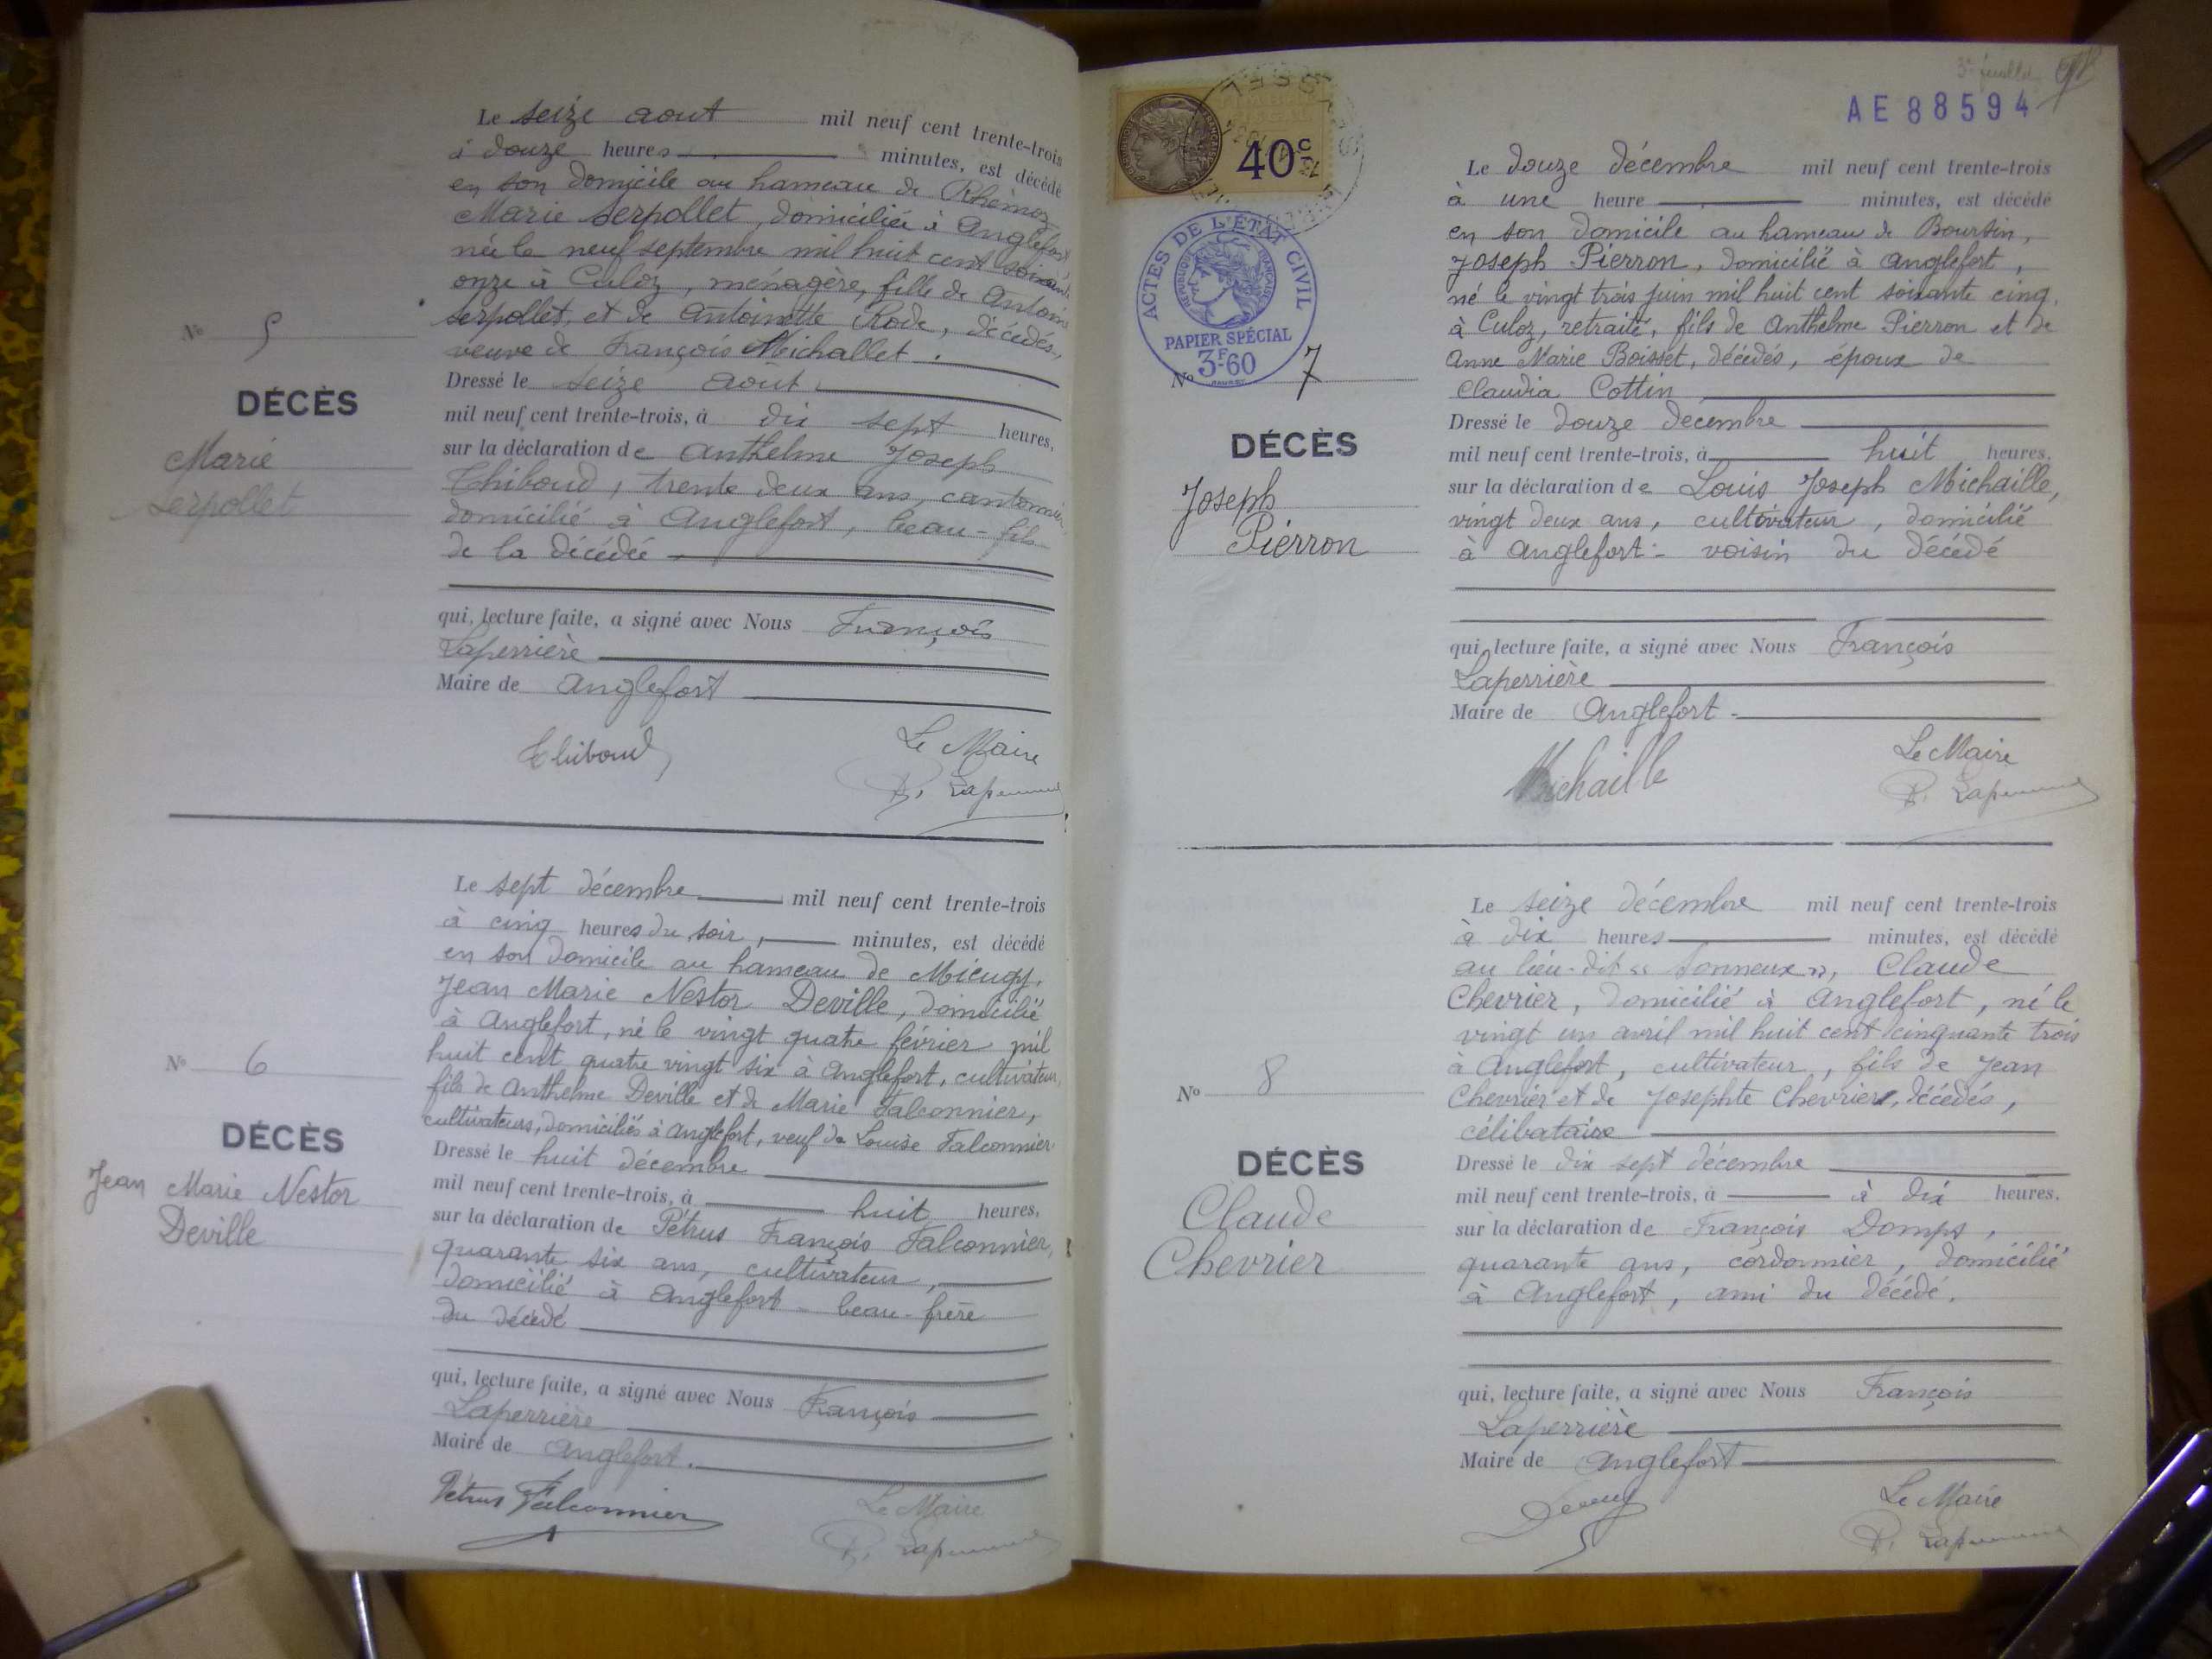 Le seize aout mil neuf cent trente-trois
à douze heures minutes, est décédé
en son domicile au hameau de Rhémoz
Marie Serpollet, domiciliée à Anglefort
née le neuf septembre mil huit cent soixante
onze à Culoz, ménagère, fille de Antoine
Serpollet, et de Antoinette Rode, décédés,
veuve de François Michallet.
Nº 5
DÉCÈS
Marie
Serpollet
Dressé le seize août
mil neuf cent trente-trois, à dix sept heures,
sur la déclaration de Anthelme Joseph
Thiboud, trente deux ans, cantonnier
domicilié à Anglefort, beau-fils
de la décédée
qui, lecture faite, a signé avec Nous François
Laperrière
Maire de Anglefort
Thiboud
Le Maire
Le sept décembre mil neuf cent trente-trois
à cinq heures du soir, minutes, est décédé
en son domicile au hameau de Mieugy,
Jean Marie Nestor Deville, domicilié
à Anglefort, né le vingt quatre février mil
huit cent quatre vingt six à Anglefort, cultivateur,
fils de Anthelme Deville et de Marie Falconnier,
cultivateurs, domiciliés à Anglefort, veuf de Louise Falconnier
Nº 6
DÉCÈS
Jean Marie Nestor
Deville
Dressé le huit décembre
mil neuf cent trente-trois, à huit heures,
sur la déclaration de Pétrus François Falconnier,
quarante six ans, cultivateur,
domicilié à Anglefort - beau-frère
du décédé
qui, lecture faite, a signé avec Nous François
Laperrière
Maire de Anglefort.
Pétrus Falconnier
Le Maire
AE 88594
40c
ACTES DE L'ÉTAT CIVIL
RÉPUBLIQUE FRANÇAISE
PAPIER SPÉCIAL
3F60
Le douze décembre mil neuf cent trente-trois
à une heure minutes, est décédé
en son domicile au hameau de Boursin,
Joseph Pierron, domicilié à Anglefort,
né le vingt trois juin mil huit cent soixante cinq,
à Culoz, retraité, fils de Anthelme Pierron et de
Anne Marie Boisset, décédés, époux de
Claudia Cottin
Nº 7
DÉCÈS
Joseph
Pierron
Dressé le douze decembre
mil neuf cent trente-trois, à huit heures,
sur la déclaration de Louis Joseph Michaille,
vingt deux ans, cultivateur, domicilié
à Anglefort - voisin du décédé
qui, lecture faite, a signé avec Nous François
Laperrière
Maire de Anglefort -
Michaille
Le Maire
Le seize décembre mil neuf cent trente-trois
à dix heures minutes, est décédé
au lieu-dit « Sonneux », Claude
Chevrier, domicilié à Anglefort, né le
vingt un avril mil huit cent cinquante trois
à Anglefort, cultivateur, fils de Jean
Chevrier et de Josephte Chevrier, décédés,
célibataire
Nº 8
DÉCÈS
Claude
Chevrier
Dressé le dix sept décembre
mil neuf cent trente-trois, à à dix heures,
sur la déclaration de François Domps,
quarante ans, cordonnier, domicilié
à Anglefort, ami du décédé.
qui, lecture faite, a signé avec Nous François
Laperrière
Maire de Anglefort
Le Maire